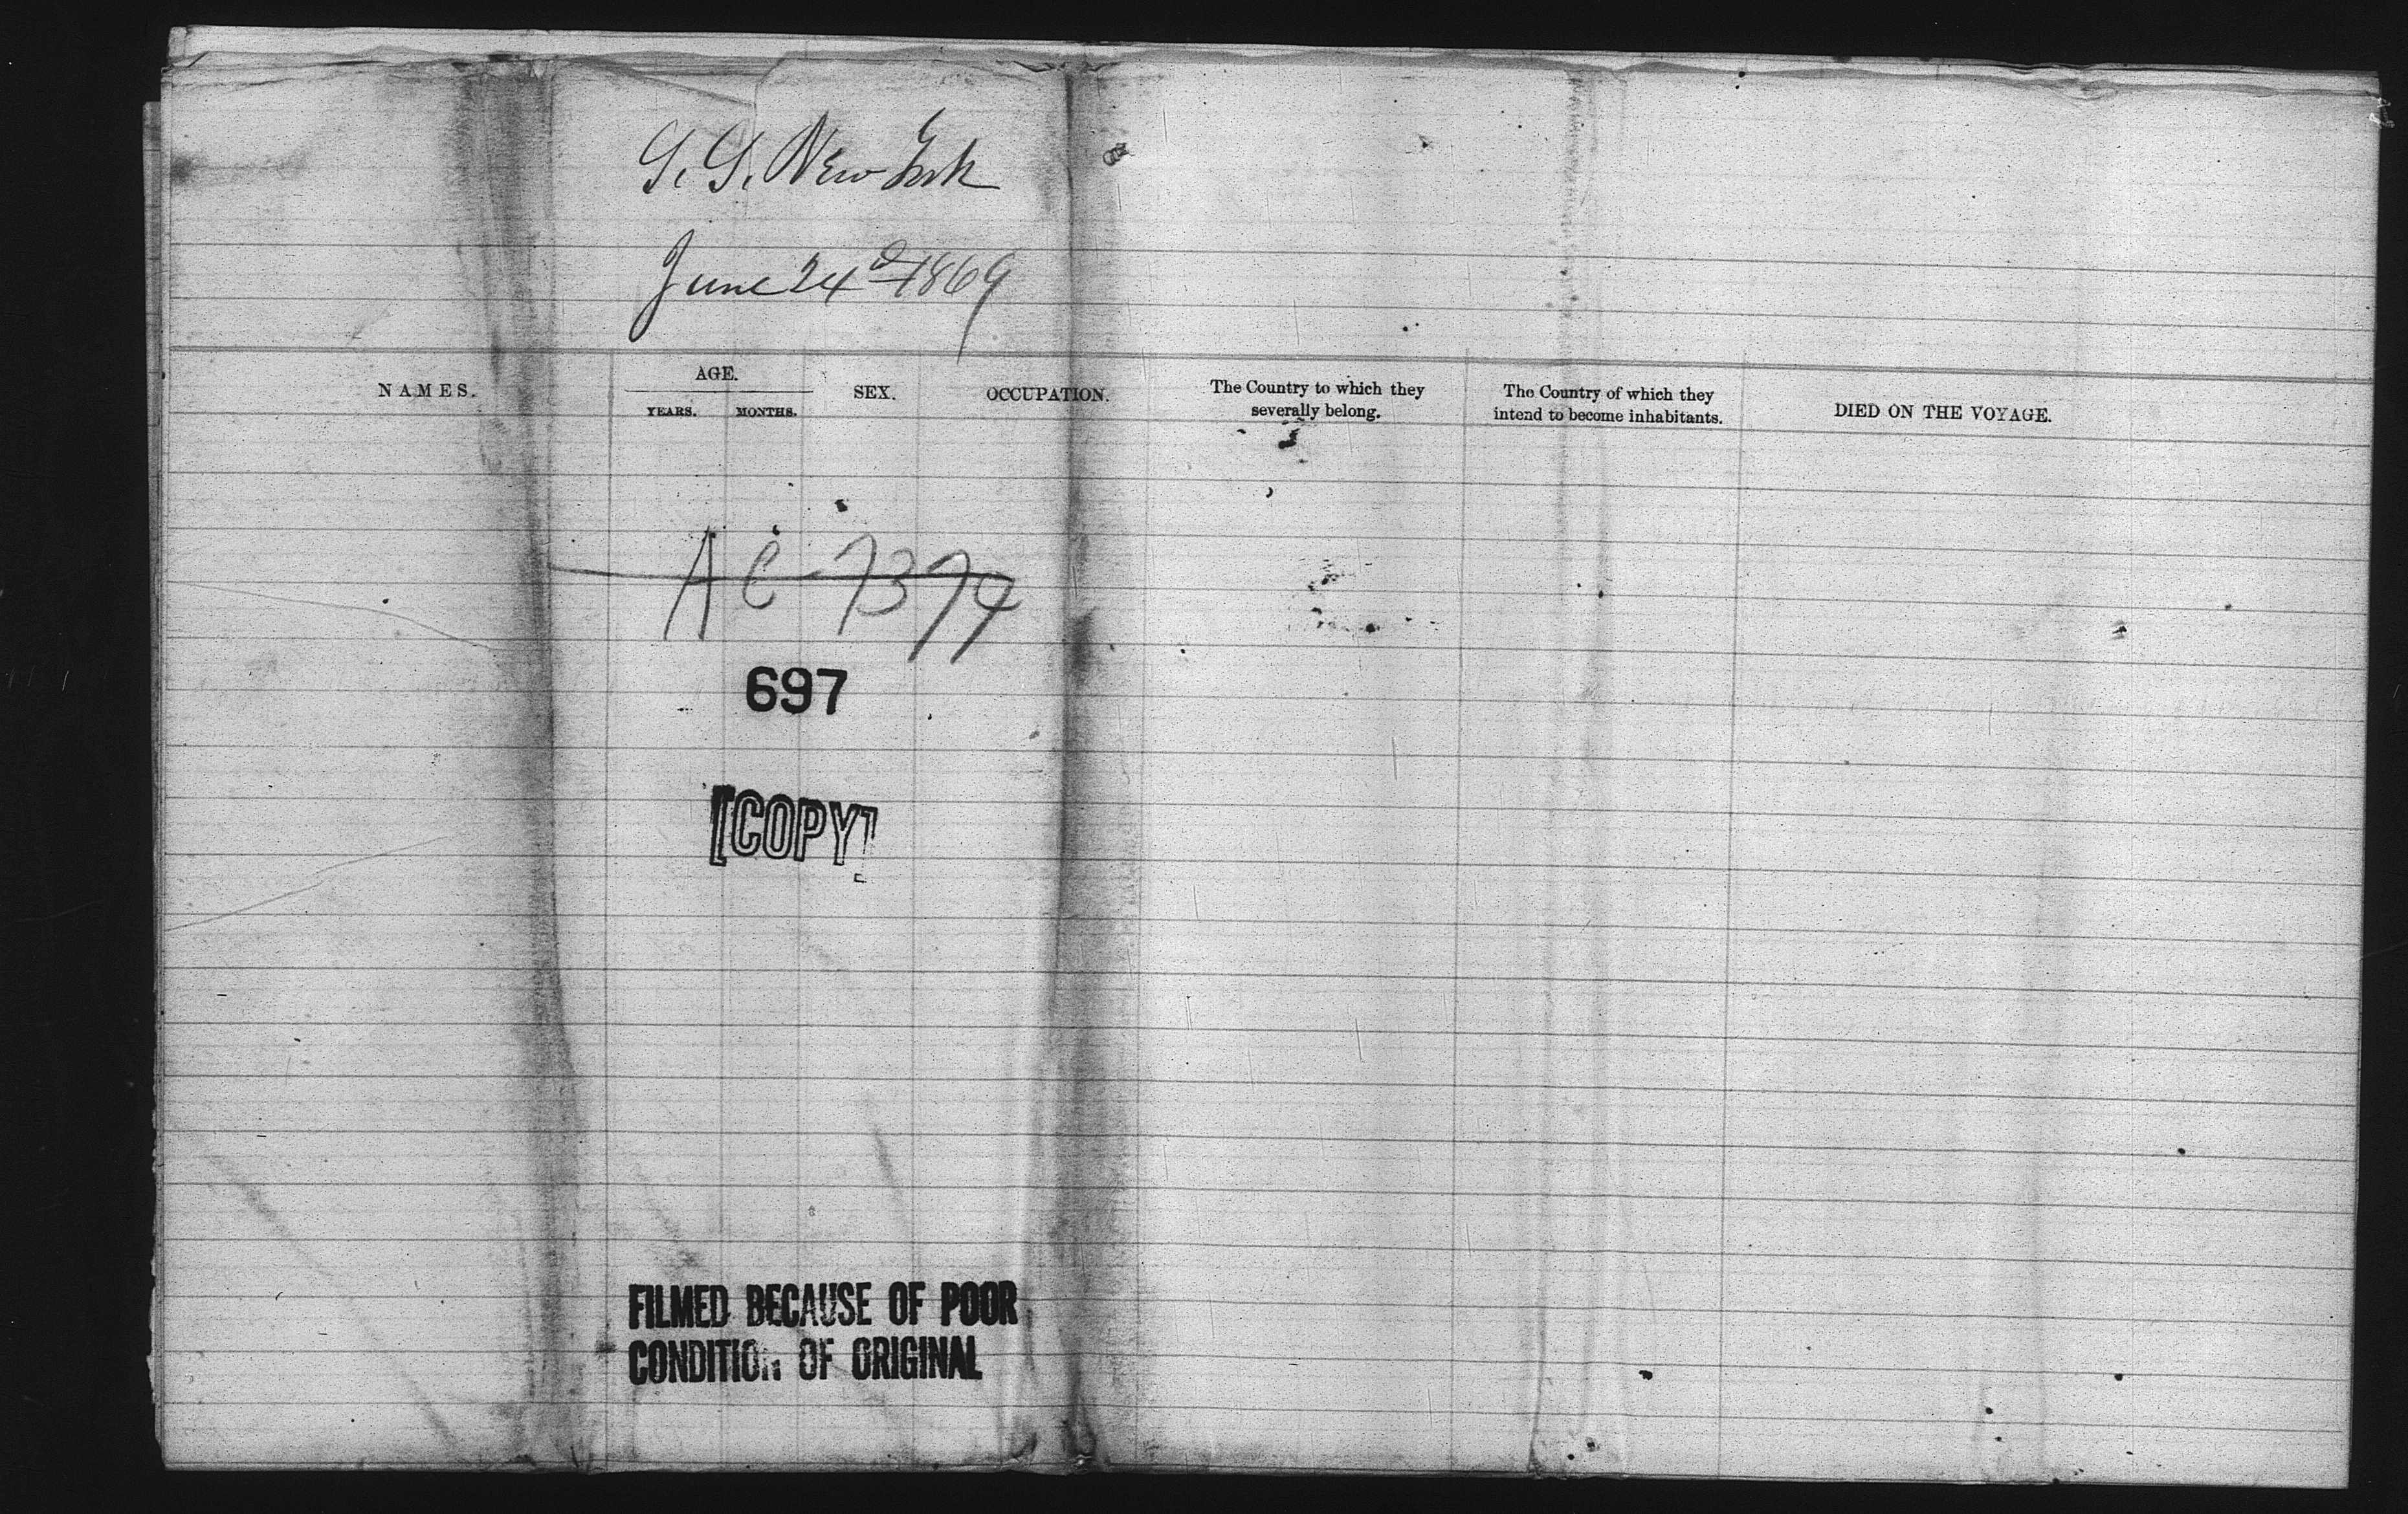 S. S. New York
June 24d 1869
NAMES.
AGE.
YEARS.
MONTHS.
SEX.
OCCUPATION.
The Country to which they
severally belong.
The Country of which they
intend to become inhabitants.
DIED ON THE VOYAGE.
AC-7379
697
[COPY]
FILMED BECAUSE OF POOR
CONDITION OF ORIGINAL